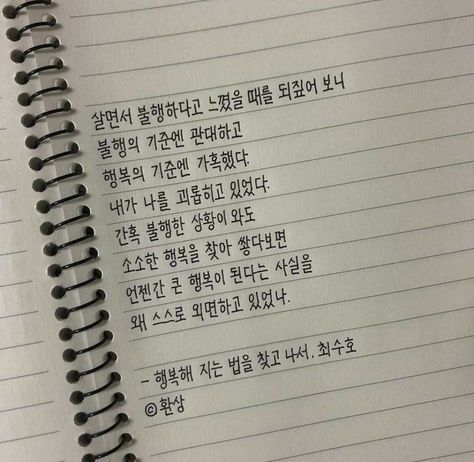 살면서 불행하다고 느꼈을 때를 되짚어 보니
불행의 기준엔 관대하고
행복의 기준엔 가혹했다.
내가 나를 괴롭히고 있었다.
간혹 불행한 상황이 와도
소소한 행복을 찾아 쌓다보면
언젠간 큰 행복이 된다는 사실을
왜 스스로 외면하고 있었나.
- 행복해 지는 법을 찾고 나서, 최수호
©환상